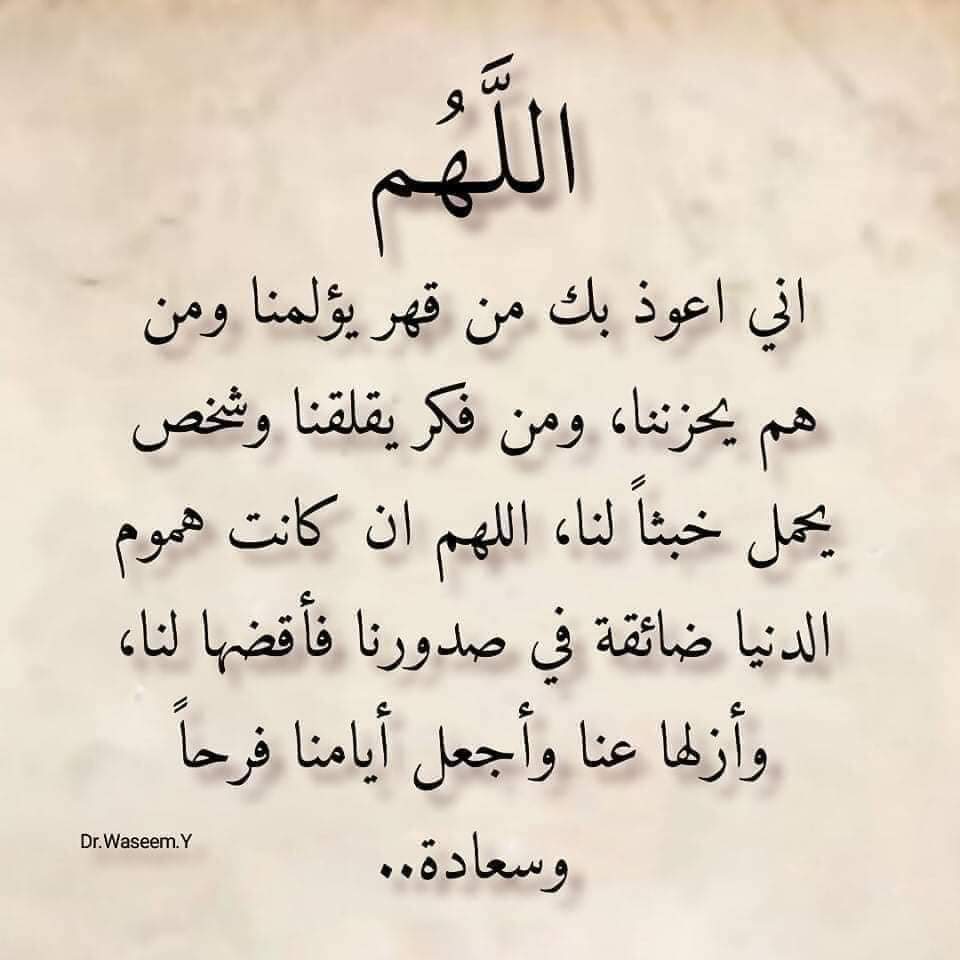 اللَّهُم
اني اعوذ بك من قهر يؤلمنا ومن
هم يحزننا، ومن فكر يقلقنا وشخص
يحمل خبثاً لنا، اللهم ان كانت هموم
الدنيا ضائقة في صدورنا فأقضها لنا،
وأزلها عنا وأجعل أيامنا فرحاً
وسعادة..
Dr.Waseem.Y